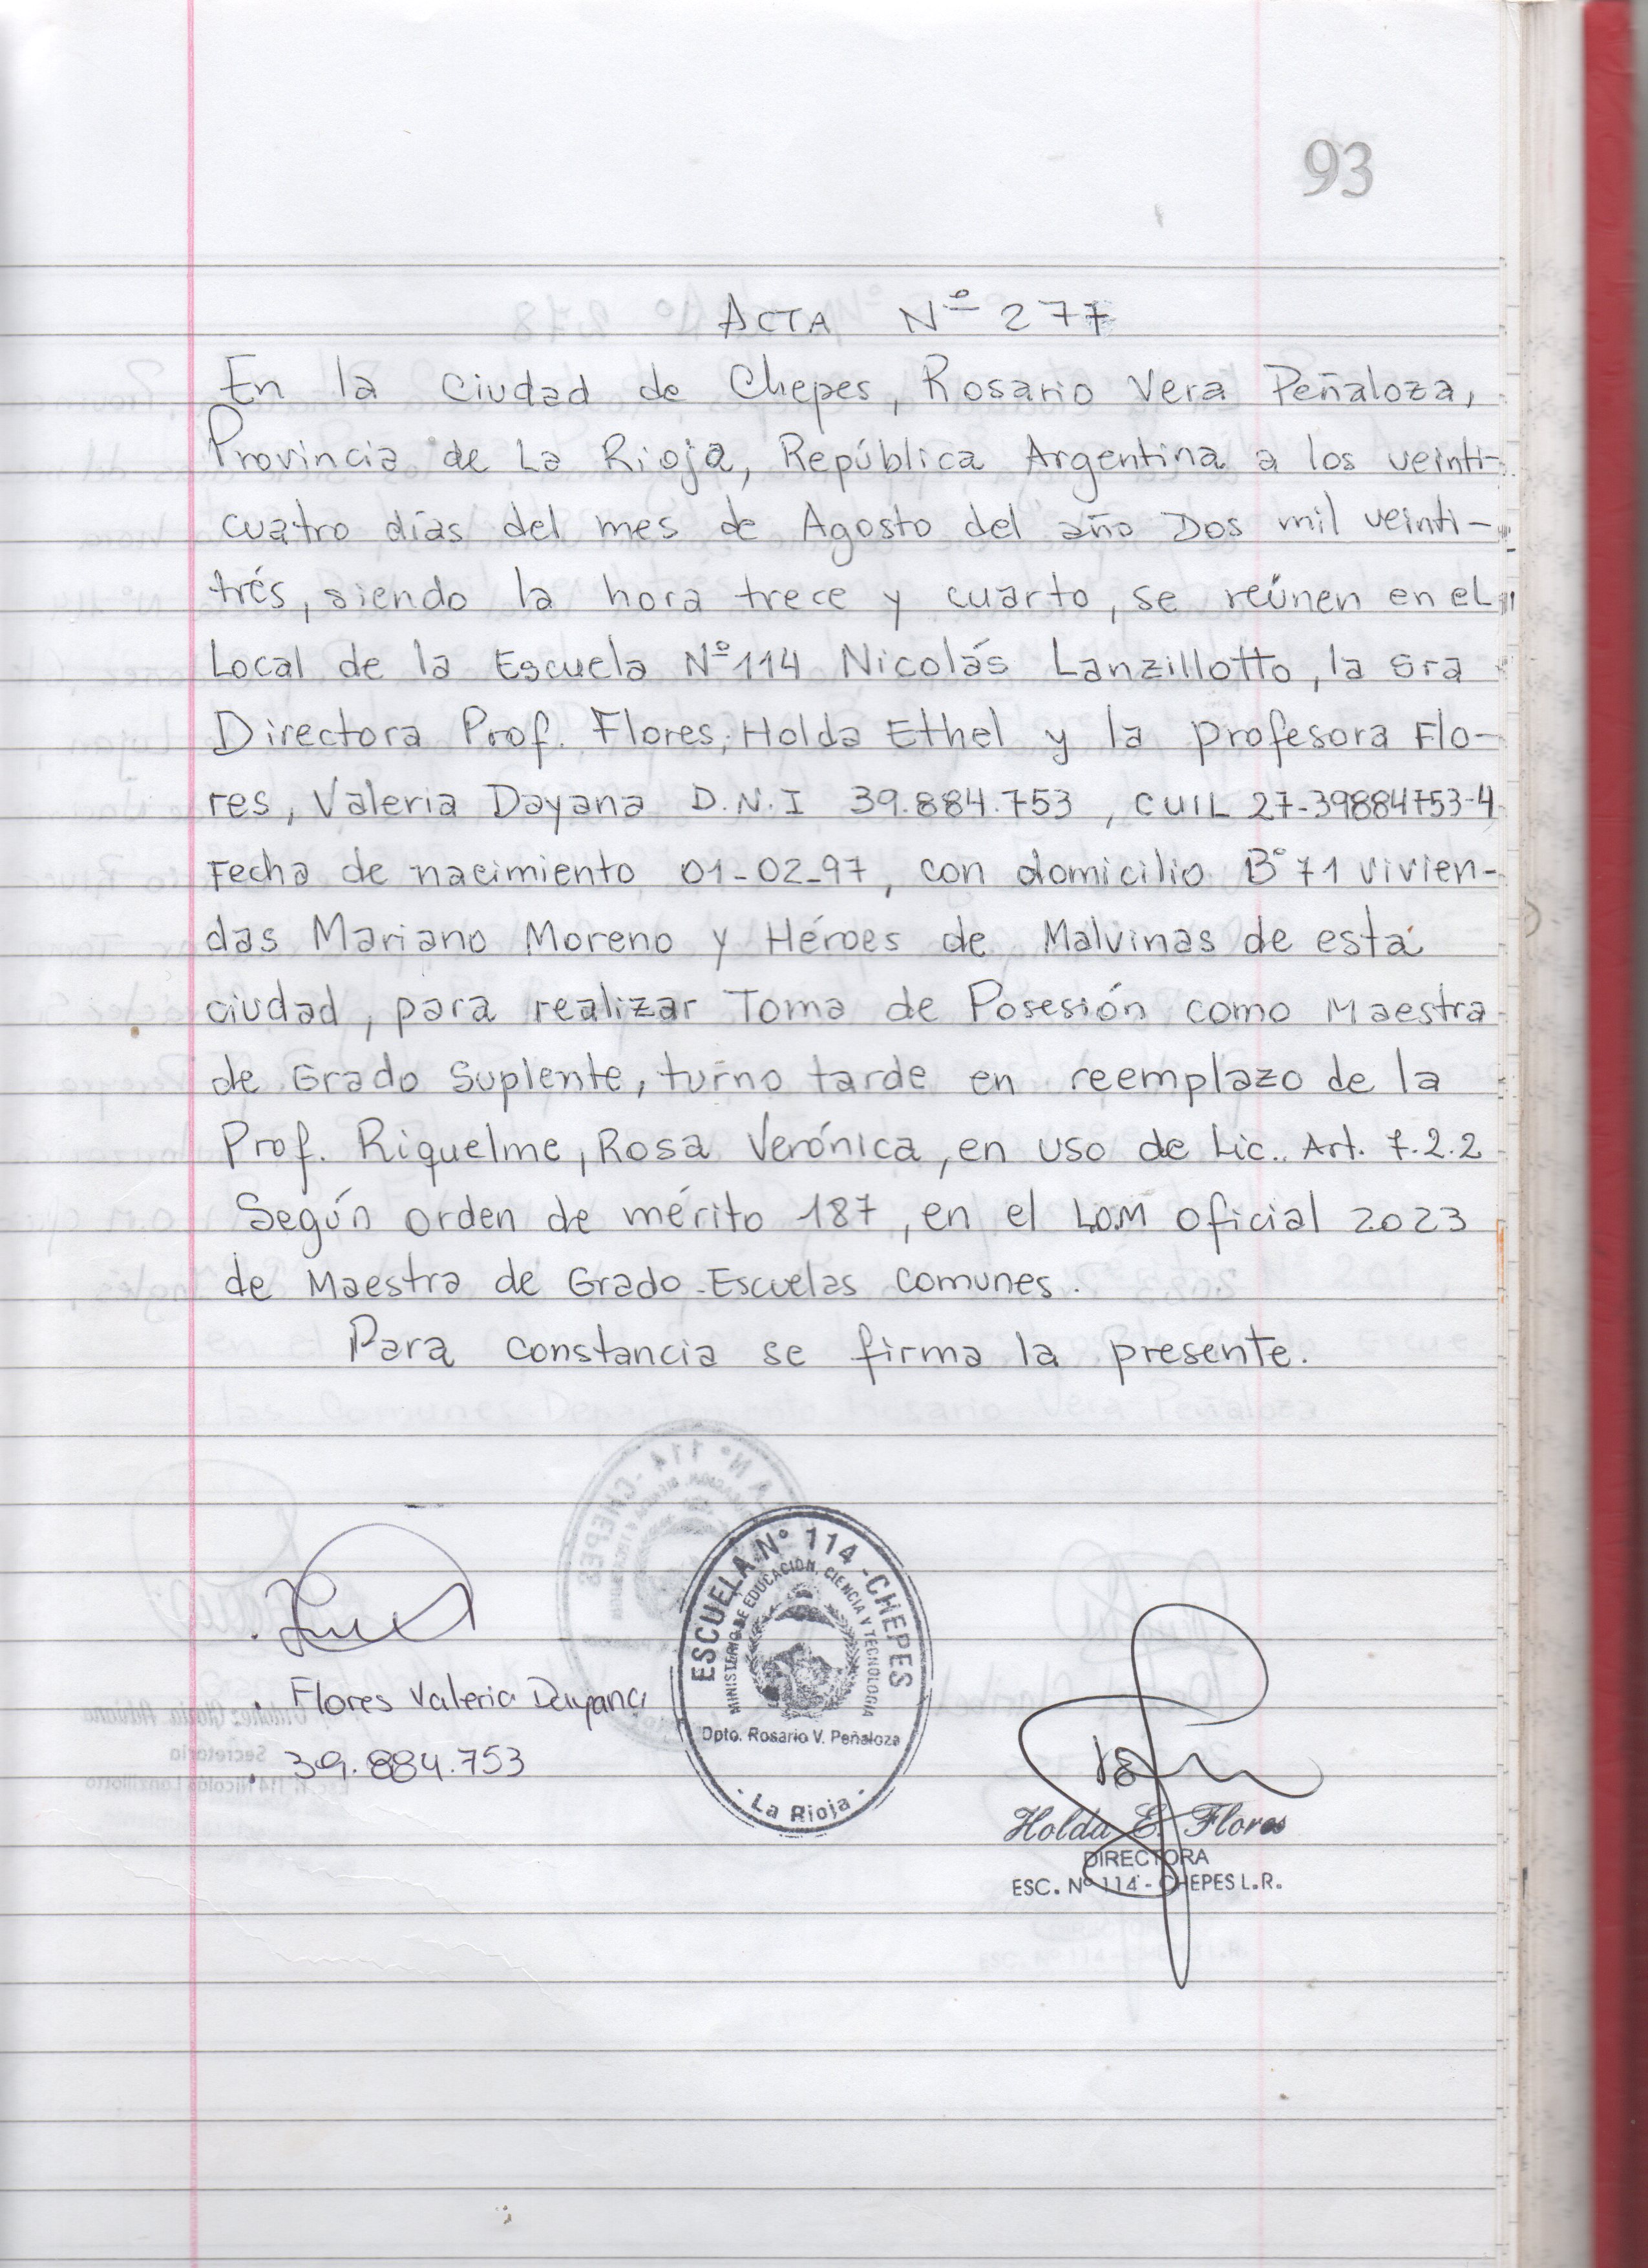 93
ACTA Nº 277
En la ciudad de Chepes, Rosario Vera Peñaloza,
Provincia de La Rioja, República Argentina a los veinti-
cuatro días del mes de Agosto del año Dos mil veinti-
trés, siendo la hora trece y cuarto, se reúnen en el
Local de la Escuela Nº114 Nicolás Lanzillotto, la sra
Directora Prof. Flores, Holda Ethel y la profesora Flo-
res, Valeria Dayana D.N.I 39.884.753, CUIL 27-39884753-4
Fecha de nacimiento 01-02-97, con domicilio B° 71 vivien-
das Mariano Moreno y Héroes de Malvinas de esta
ciudad, para realizar Toma de Posesión como Maestra
de Grado Suplente, turno tarde en reemplazo de la
Prof. Riquelme, Rosa Verónica, en uso de Lic.. Art. 7.2.2
Según orden de mérito 187, en el L.O.M oficial 2023
de Maestra de Grado Escuelas comunes.
Para constancia se firma la presente.
ESCUELA N° 114 - CHEPES
MINISTERIO DE EDUCACION, CIENCIA Y TECNOLOGIA
Dpto. Rosario V. Peñaloza
- La Rioja -
Flores Valeria Dayana
39.884.753
Holda E. Flores
DIRECTORA
ESC. Nº 114 - CHEPES L.R.